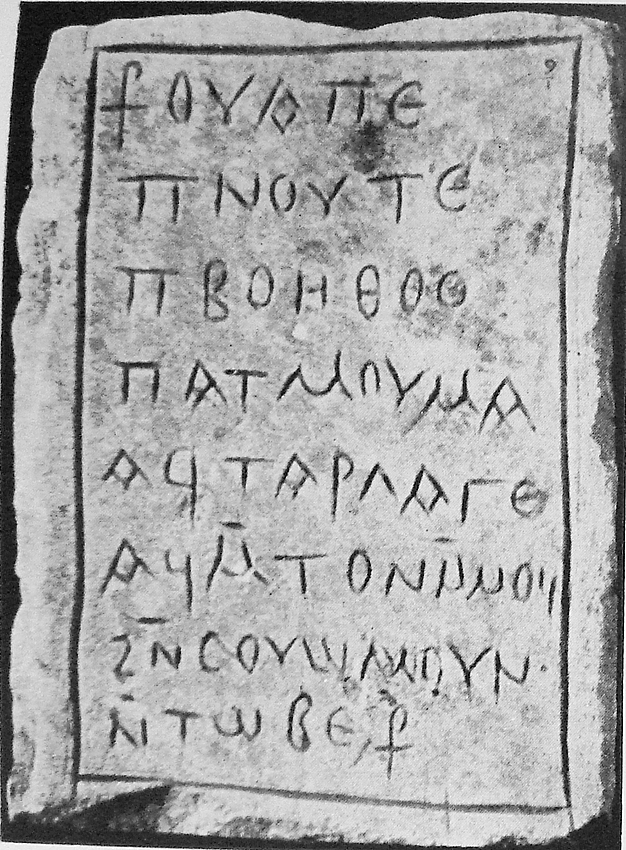 ⳁ ⲟⲩⲁ ⲡⲉ
ⲡⲛⲟⲩⲧⲉ
ⲡⲃⲟⲏⲑⲟⲥ
ⲡⲁⲧⲙⲟⲩⲙⲁ
ⲁϥⲧⲁⲣⲗⲁⲅⲉ
ⲁϥⲙ̄ⲧⲟⲛⲙ̄ⲙⲟϥ
ϩⲛ̄ⲥⲟⲩϣⲙⲟⲩⲛ
ⲛ̄ⲧⲱⲃⲉ ⳁ